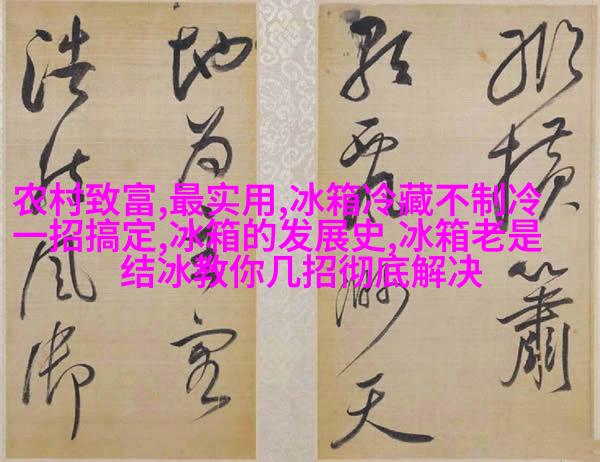 横簫
天
地為
浩風御
农村致富,最实用,冰箱冷藏不制冷
一招搞定,冰箱的发展史,冰箱老是
结冰教你几招彻底解决